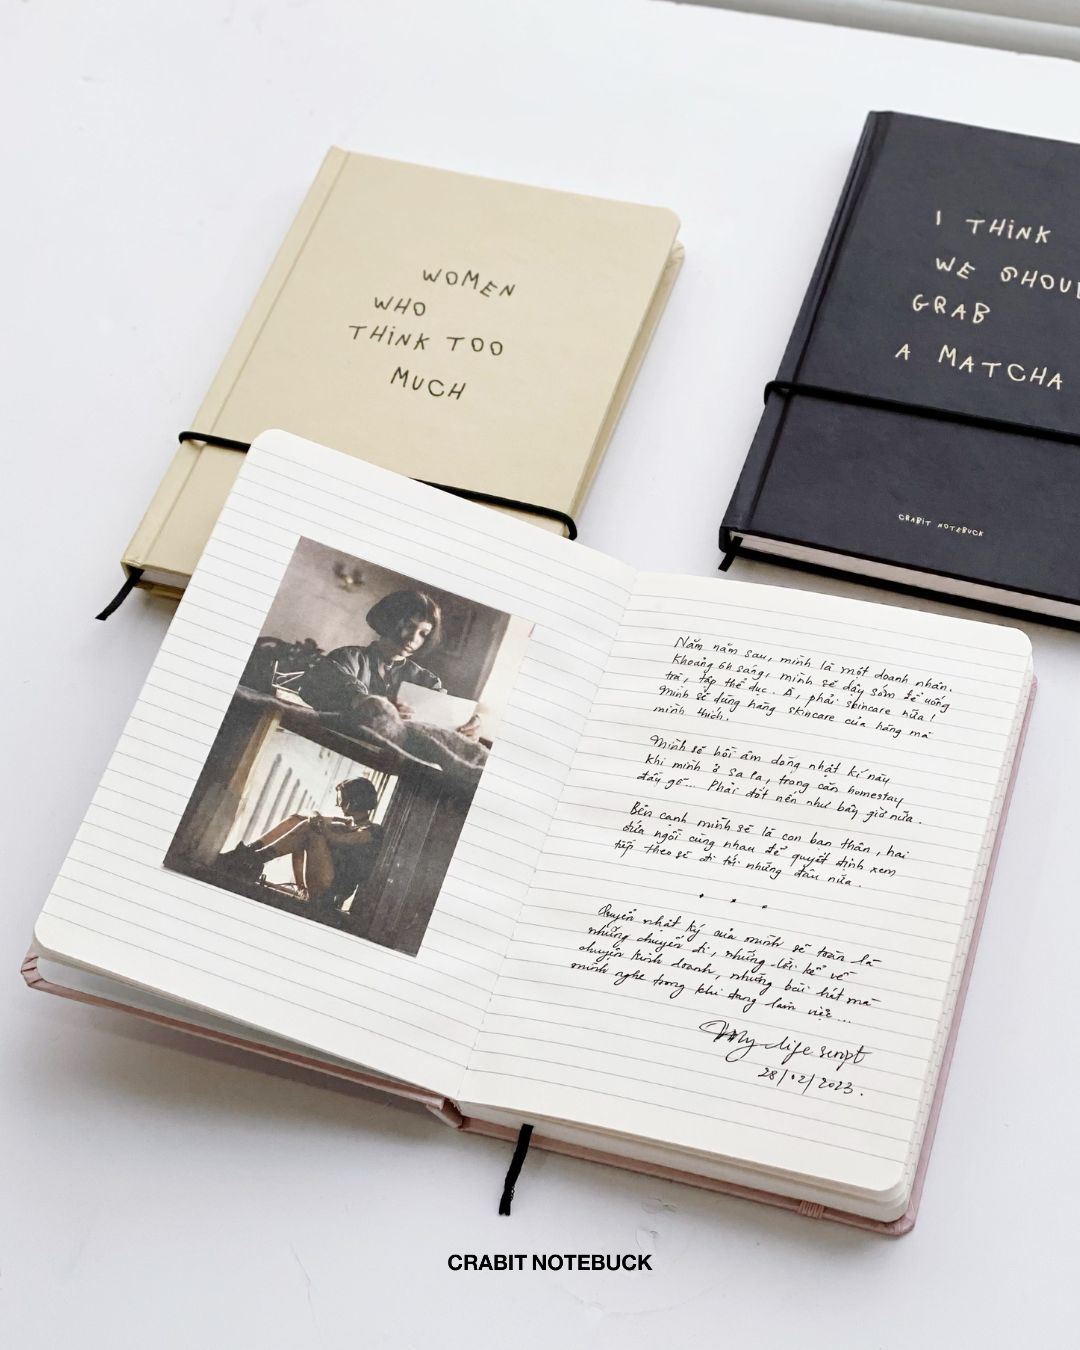 WOMEN
WHO
THINK TOO
MUCH
I THINK
WE SHOUL
GRAB
A MATCHA
CRABIT NOTEBUCK
Năm năm sau, mình là một doanh nhân.
Khoảng 6h sáng, mình sẽ dậy sớm để uống
trà, tập thể dục. À, phải skincare nữa!
Mình sẽ dùng hãng skincare của hãng mà
mình thích.
Mình sẽ hồi âm dòng nhật kí này
khi mình ở Sa Pa, trong căn homestay
đầy gỗ... Phải đốt nến như bây giờ nữa.
Bên cạnh mình sẽ là con bạn thân, hai
đứa ngồi cùng nhau để quyết định xem
tiếp theo sẽ đi tới những đâu nữa.
* * *
Quyển nhật ký của mình sẽ toàn là
những chuyến đi, những lời kể về
chuyện kinh doanh, những bài hát mà
mình nghe trong khi đang làm việc...
My life script
28/02/2023.
CRABIT NOTEBUCK